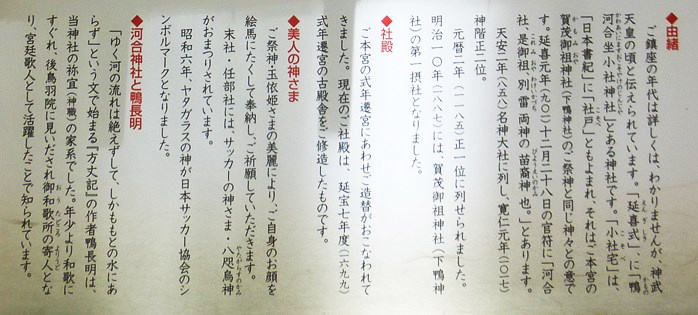 ◆由緒
ご鎮座の年代は詳しくは、わかりませんが、神武
天皇の頃と伝えられています。「延喜式」に、「鴨
河合坐小社宅神社」とある神社です。「小社宅」は、
「日本書紀」に「社戸」ともよまれ、それは、ご本宮の
賀茂御祖神社(下鴨神社)のご祭神と同じ神々との意で
す。延喜元年(九〇一)十二月二十八日の官符に「河合
社、是御祖、別雷両神の苗裔神也。」とあります。
天安二年(八五八)名神大社に列し、寛仁元年(一〇一七)
神階正二位。
元暦二年(一一八五)正一位に列せられました。
明治一〇年(一八七七)には、賀茂御祖神社(下鴨神
社)の第一摂社となりました。
◆社殿
ご本宮の式年遷宮にあわせご造替がおこなわれて
きました。現在のご社殿は、延宝七年度(一六七九)
式年遷宮の古殿舎をご修造したものです。
◆美人の神さま
ご祭神・玉依姫さまの美麗により、ご自身のお顔を
絵馬にたくして奉納し、ご祈願していただきます。
末社・任部社には、サッカーの神さま・八咫烏神
がおまつりされています。
昭和六年、ヤタガラスの神が日本サッカー協会のシ
ンボルマークとなりました。
◆河合神社と鴨長明
「ゆく河の流れは絶えずして、しかももとの水にあ
らず」という文で始まる『方丈記』の作者鴨長明は、
当神社の祢宜(神職)の家系でした。年少より和歌に
すぐれ、後鳥羽院に見いだされ御和歌所の寄人とな
り、宮廷歌人として活躍したことで知られています。